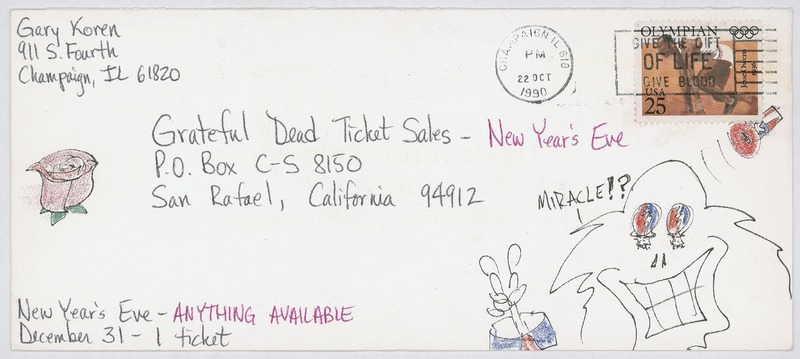 Gary Koren
911 S. Fourth
Champaign, IL 61820
CHAMPAIGN IL 618
PM
22 OCT
1990
GIVE THE GIFT
OF LIFE
GIVE BLOOD
OLYMPIAN
Jesse Owens
USA
25
Grateful Dead Ticket Sales - New Year's Eve
P.O. Box C-S 8150
San Rafael, California 94912
MIRACLE!?
New Year's Eve - ANYTHING AVAILABLE
December 31 - 1 ticket